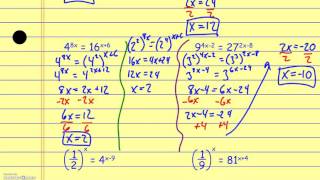 2x = 24
2 2
x = 12
4^{8x} = 16^{x+6}
4^{8x} = (4^2)^{x+6}
4^{8x} = 4^{2x+12}
8x = 2x+12
-2x -2x
6x = 12
6 6
x = 2
(2^2)^{8x} = (2^4)^{(x+6)}
16x = 4x+24
12x = 24
x = 2
9^{4x-2} = 27^{2x-8}
(3^2)^{4x-2} = (3^3)^{2x-8}
3^{8x-4} = 3^{6x-24}
8x-4 = 6x-24
-6x -6x
2x-4 = -24
+4 +4
2x = -20
2 2
x = -10
(1/2)^x = 4^{x-9}
(1/9)^x = 81^{x+4}